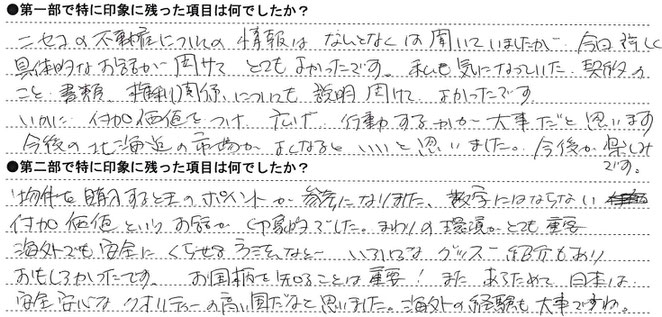 ●第一部で特に印象に残った項目は何でしたか？
ニセコの不動産についての情報はなんとなくは聞いていましたが 今日詳しく
具体的なお話が聞けて とてもよかったです。私も気になっていた 契約の
こと 書類、権利関係についても 説明 聞けて よかったです
いかに 付加価値をつけ 広げ 行動するかが 大事だと思います
今後の北海道の市場が よくなると いいと思いました。今後が楽しみ
です。
●第二部で特に印象に残った項目は何でしたか？
物件を購入するときのポイントが 参考になりました、数字にはならない
付加価値という お話が 印象的でした。まわりの環境が とても 重要
海外でも安全に くらせる など いろいろな グッズの紹介もあり
おもしろかったです。 お国柄を知ることは重要！ また あらためて 日本は
安全安心な クオリティーの高い国だなと思いました。海外の経験も大事ですね。